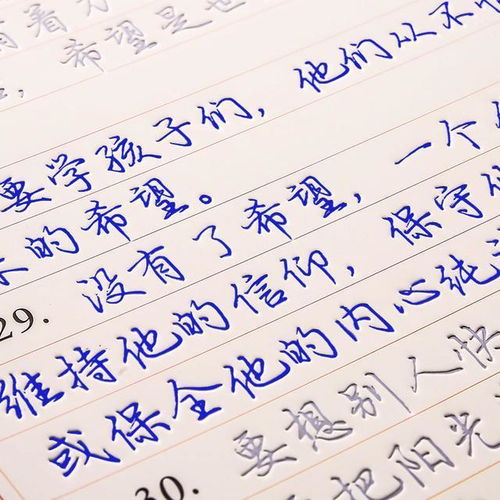 着
，希望是
要学孩子们，他们从不
来的希望。
29. 没有了希望，一个
维持他的信仰，保守
或保全他的内心纯
30. 要想别人快
把阳光